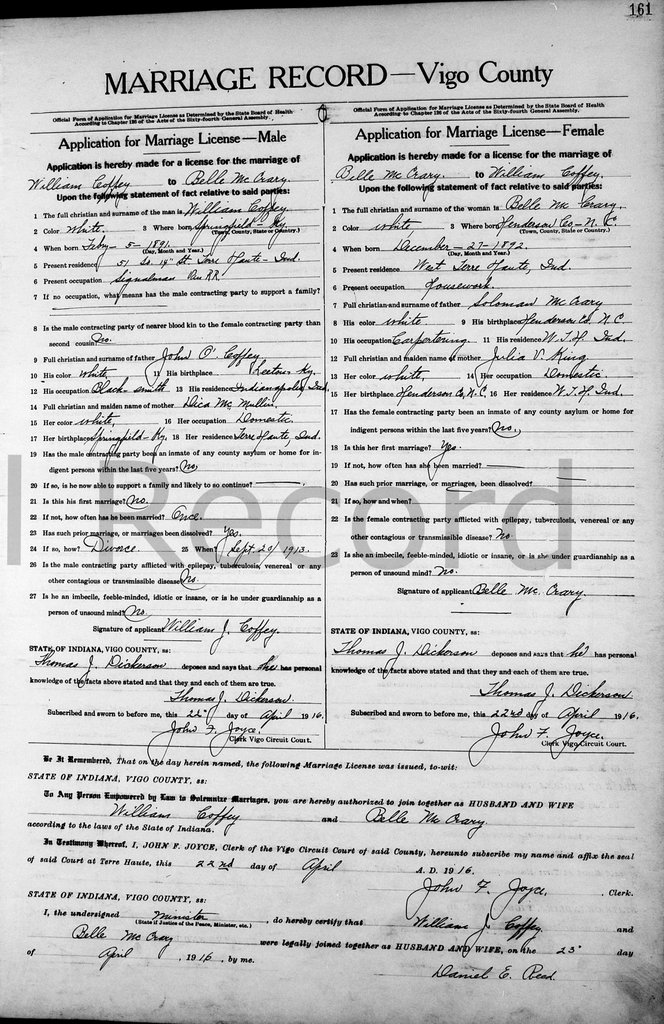 161
MARRIAGE RECORD—Vigo County
Official Form of Application for Marriage License as Determined by the State Board of Health
According to Chapter 126 of the Acts of the Sixty-fourth General Assembly.
Application for Marriage License—Male
Application is hereby made for a license for the marriage of
William Coffey to Belle McCrary
Upon the following statement of fact relative to said parties:
1 The full christian and surname of the man is William Coffey.
2 Color White. 3 Where born Springfield - Ky.
(Town, County, State or Country.)
4 When born Feby - 5 - 1891.
(Day, Month and Year.)
5 Present residence 51 So. 19" St. Terre Haute - Ind.
6 Present occupation Signalman Van RR.
7 If no occupation, what means has the male contracting party to support a family?
8 Is the male contracting party of nearer blood kin to the female contracting party than
second cousin? No.
9 Full christian and surname of father John O. Coffey
10 His color White, 11 His birthplace Ky.
12 His occupation Black smith 13 His residence Indianapolis, Ind.
14 Full christian and maiden name of mother Dica McMullin
15 Her color White, 16 Her occupation Domestic
17 Her birthplace Springfield - Ky. 18 Her residence Terre Haute, Ind.
19 Has the male contracting party been an inmate of any county asylum or home for in-
digent persons within the last five years? No
20 If so, is he now able to support a family and likely to so continue?
21 Is this his first marriage? No.
22 If not, how often has he been married? Once.
23 Has such prior marriage, or marriages been dissolved? Yes.
24 If so, how? Divorce. 25 When? Sept. 20/1913.
26 Is the male contracting party afflicted with epilepsy, tuberculosis venereal or any
other contagious or transmissible disease? No.
27 Is he an imbecile, feeble-minded, idiotic or insane, or is he under guardianship as a
person of unsound mind? No.
Signature of applicant William J. Coffey.
STATE OF INDIANA, VIGO COUNTY, ss:
Thomas J. Dickerson deposes and says that he has personal
knowledge of the facts above stated and that they and each of them are true.
Thomas J. Dickerson
Subscribed and sworn to before me, this 22" day of April 1916.
John F. Joyce.
Clerk Vigo Circuit Court.
Official Form of Application for Marriage License as Determined by the State Board of Health
According to Chapter 126 of the Acts of the Sixty-fourth General Assembly.
Application for Marriage License—Female
Application is hereby made for a license for the marriage of
Belle McCrary. to William Coffey.
Upon the following statement of fact relative to said parties:
1 The full christian and surname of the woman is Belle McCrary.
2 Color White, 3 Where born Henderson Co - N. C.
(Town, County, State or Country.)
4 When born December - 27 - 1892.
(Day, Month and Year.)
5 Present residence West Terre Haute, Ind.
6 Present occupation Housework.
7 Full christian and surname of father Soloman McCrary
8 His color White 9 His birthplace Henderson Co. N. C.
10 His occupation Carpentering. 11 His residence W. T. H. Ind.
12 Full christian and maiden name of mother Julia V. King
13 Her color White, 14 Her occupation Domestic.
15 Her birthplace Henderson Co, N. C. 16 Her residence W. T. H. Ind.
17 Has the female contracting party been an inmate of any county asylum or home for
indigent persons within the last five years? No.
18 Is this her first marriage? Yes.
19 If not, how often has she been married?
20 Has such prior marriage, or marriages, been dissolved?
21 If so, how and when?
22 Is the female contracting party afflicted with epilepsy, tuberculosis, venereal or any
other contagious or transmissible disease? No.
23 Is she an imbecile, feeble-minded, idiotic or insane, or is she under guardianship as a
person of unsound mind? No.
Signature of applicant Belle McCrary.
STATE OF INDIANA, VIGO COUNTY, ss:
Thomas J. Dickerson deposes and says that he has personal
knowledge of the facts above stated and that they and each of them are true.
Thomas J. Dickerson
Subscribed and sworn to before me, this 22nd day of April 1916.
John F. Joyce.
Clerk Vigo Circuit Court.
l Record
Be It Remembered, That on the day herein named, the following Marriage License was issued, to-wit:
STATE OF INDIANA, VIGO COUNTY, ss:
To Any Person Empowered by Law to Solemnize Marriages, you are hereby authorized to join together as HUSBAND AND WIFE
William Coffey and Belle McCrary
according to the laws of the State of Indiana.
In Testimony Whereof, I, JOHN F. JOYCE, Clerk of the Vigo Circuit Court of said County, hereunto subscribe my name and affix the seal
of said Court at Terre Haute, this 22nd day of April A. D. 1916.
John F. Joyce, Clerk.
STATE OF INDIANA, VIGO COUNTY, ss:
I, the undersigned Minister, do hereby certify that William J. Coffey, and
(State if Justice of the Peace, Minister, etc.)
Belle McCrary were legally joined together as HUSBAND AND WIFE, on the 23" day
of April, 1916, by me.
Daniel E. Reed.